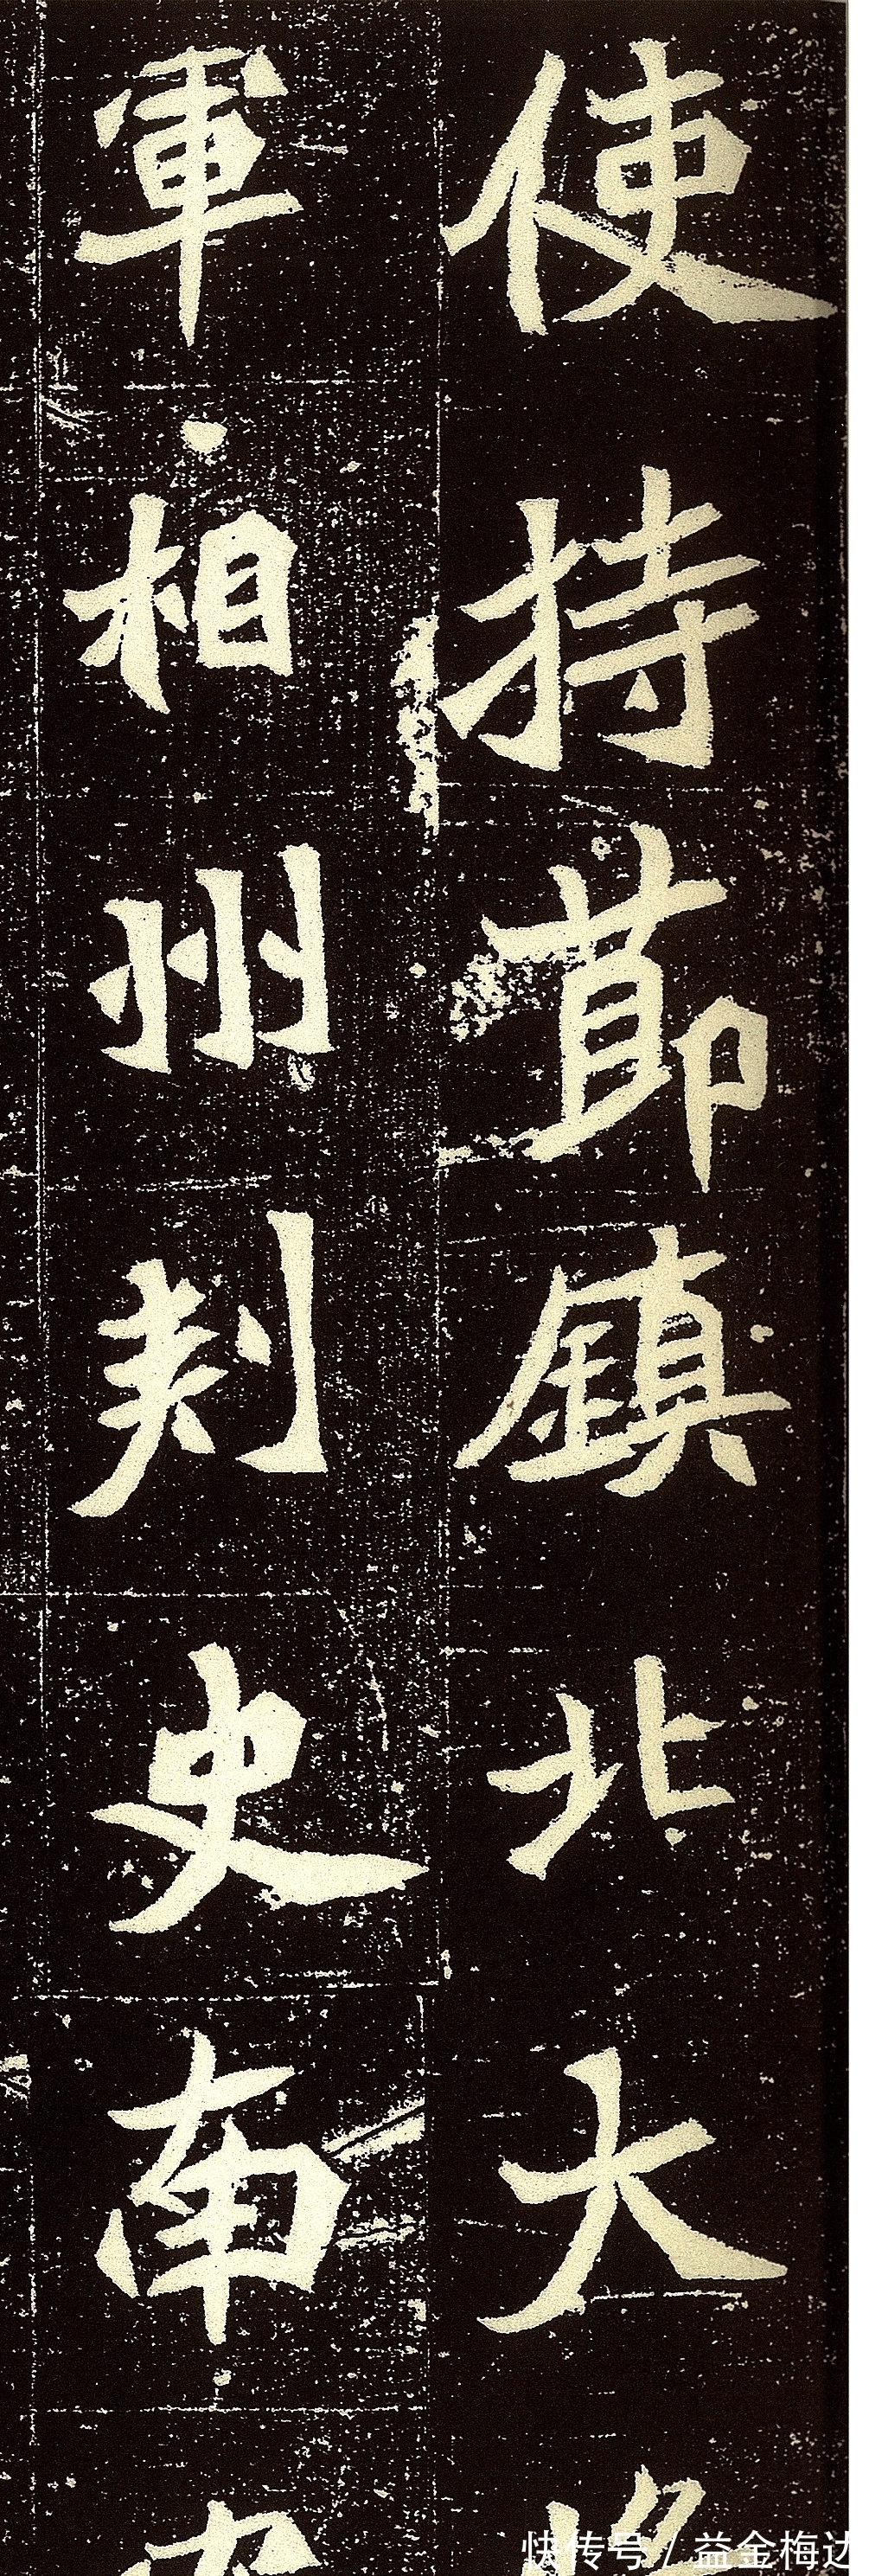 使持節鎮北大將
軍相州刺史南安
快传号/益金梅达